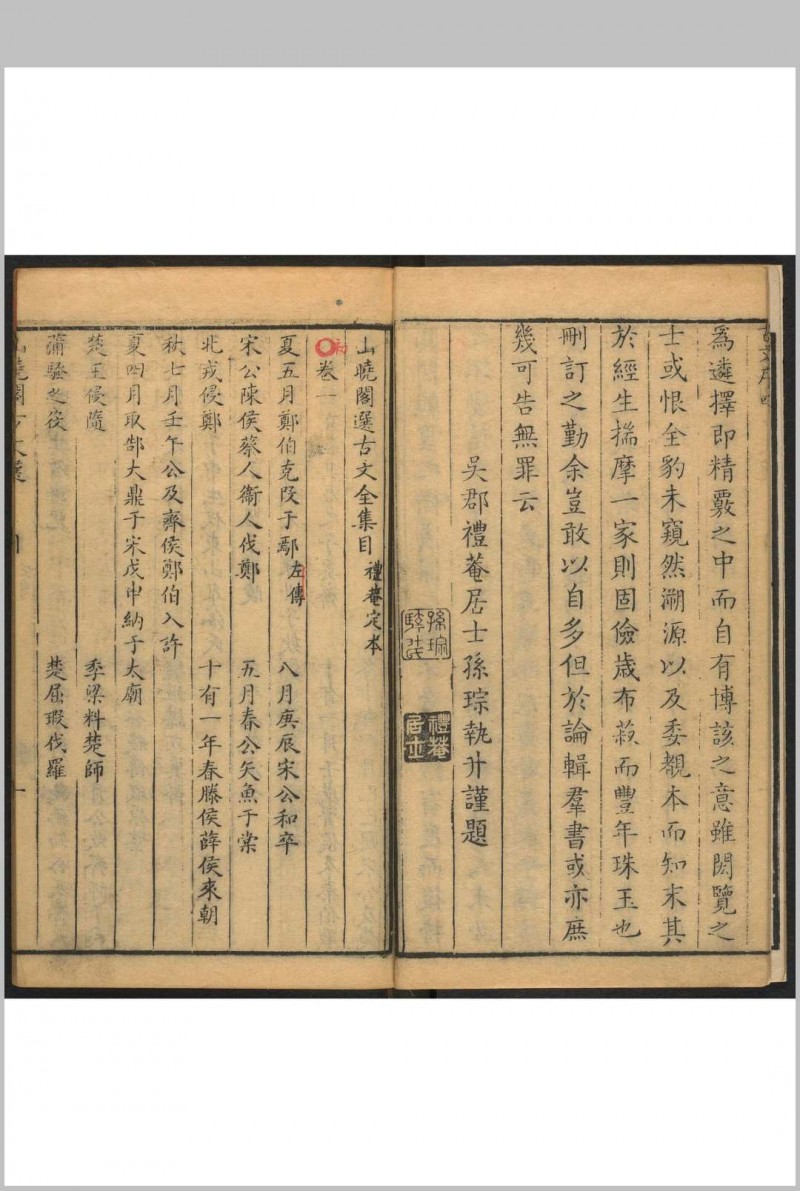 為遴擇即精覈之中而自有博該之意雖閎覽之
士或恨全豹未窺然溯源以及委覩本而知末其
於經生揣摩一家則固儉歲布菽而豐年珠玉也
刪訂之勤余豈敢以自多但於論輯羣書或亦庶
幾可告無罪云
吳郡禮菴居士孫琮執升謹題
孫琮
禮菴居士
山曉閣選古文全集目
禮菴定本
卷一
夏五月鄭伯克段于鄢 左傳
八月庚辰宋公和卒
宋公陳侯蔡人衞人伐鄭
五月春公矢魚于棠
北戎侵鄭
十有一年春滕侯薛侯來朝
秋七月壬午公及齊侯鄭伯入許
夏四月取郜大鼎于宋戊申納于太廟
楚王侵隨
季梁料楚師
蒲騷之役
楚屈瑕伐羅